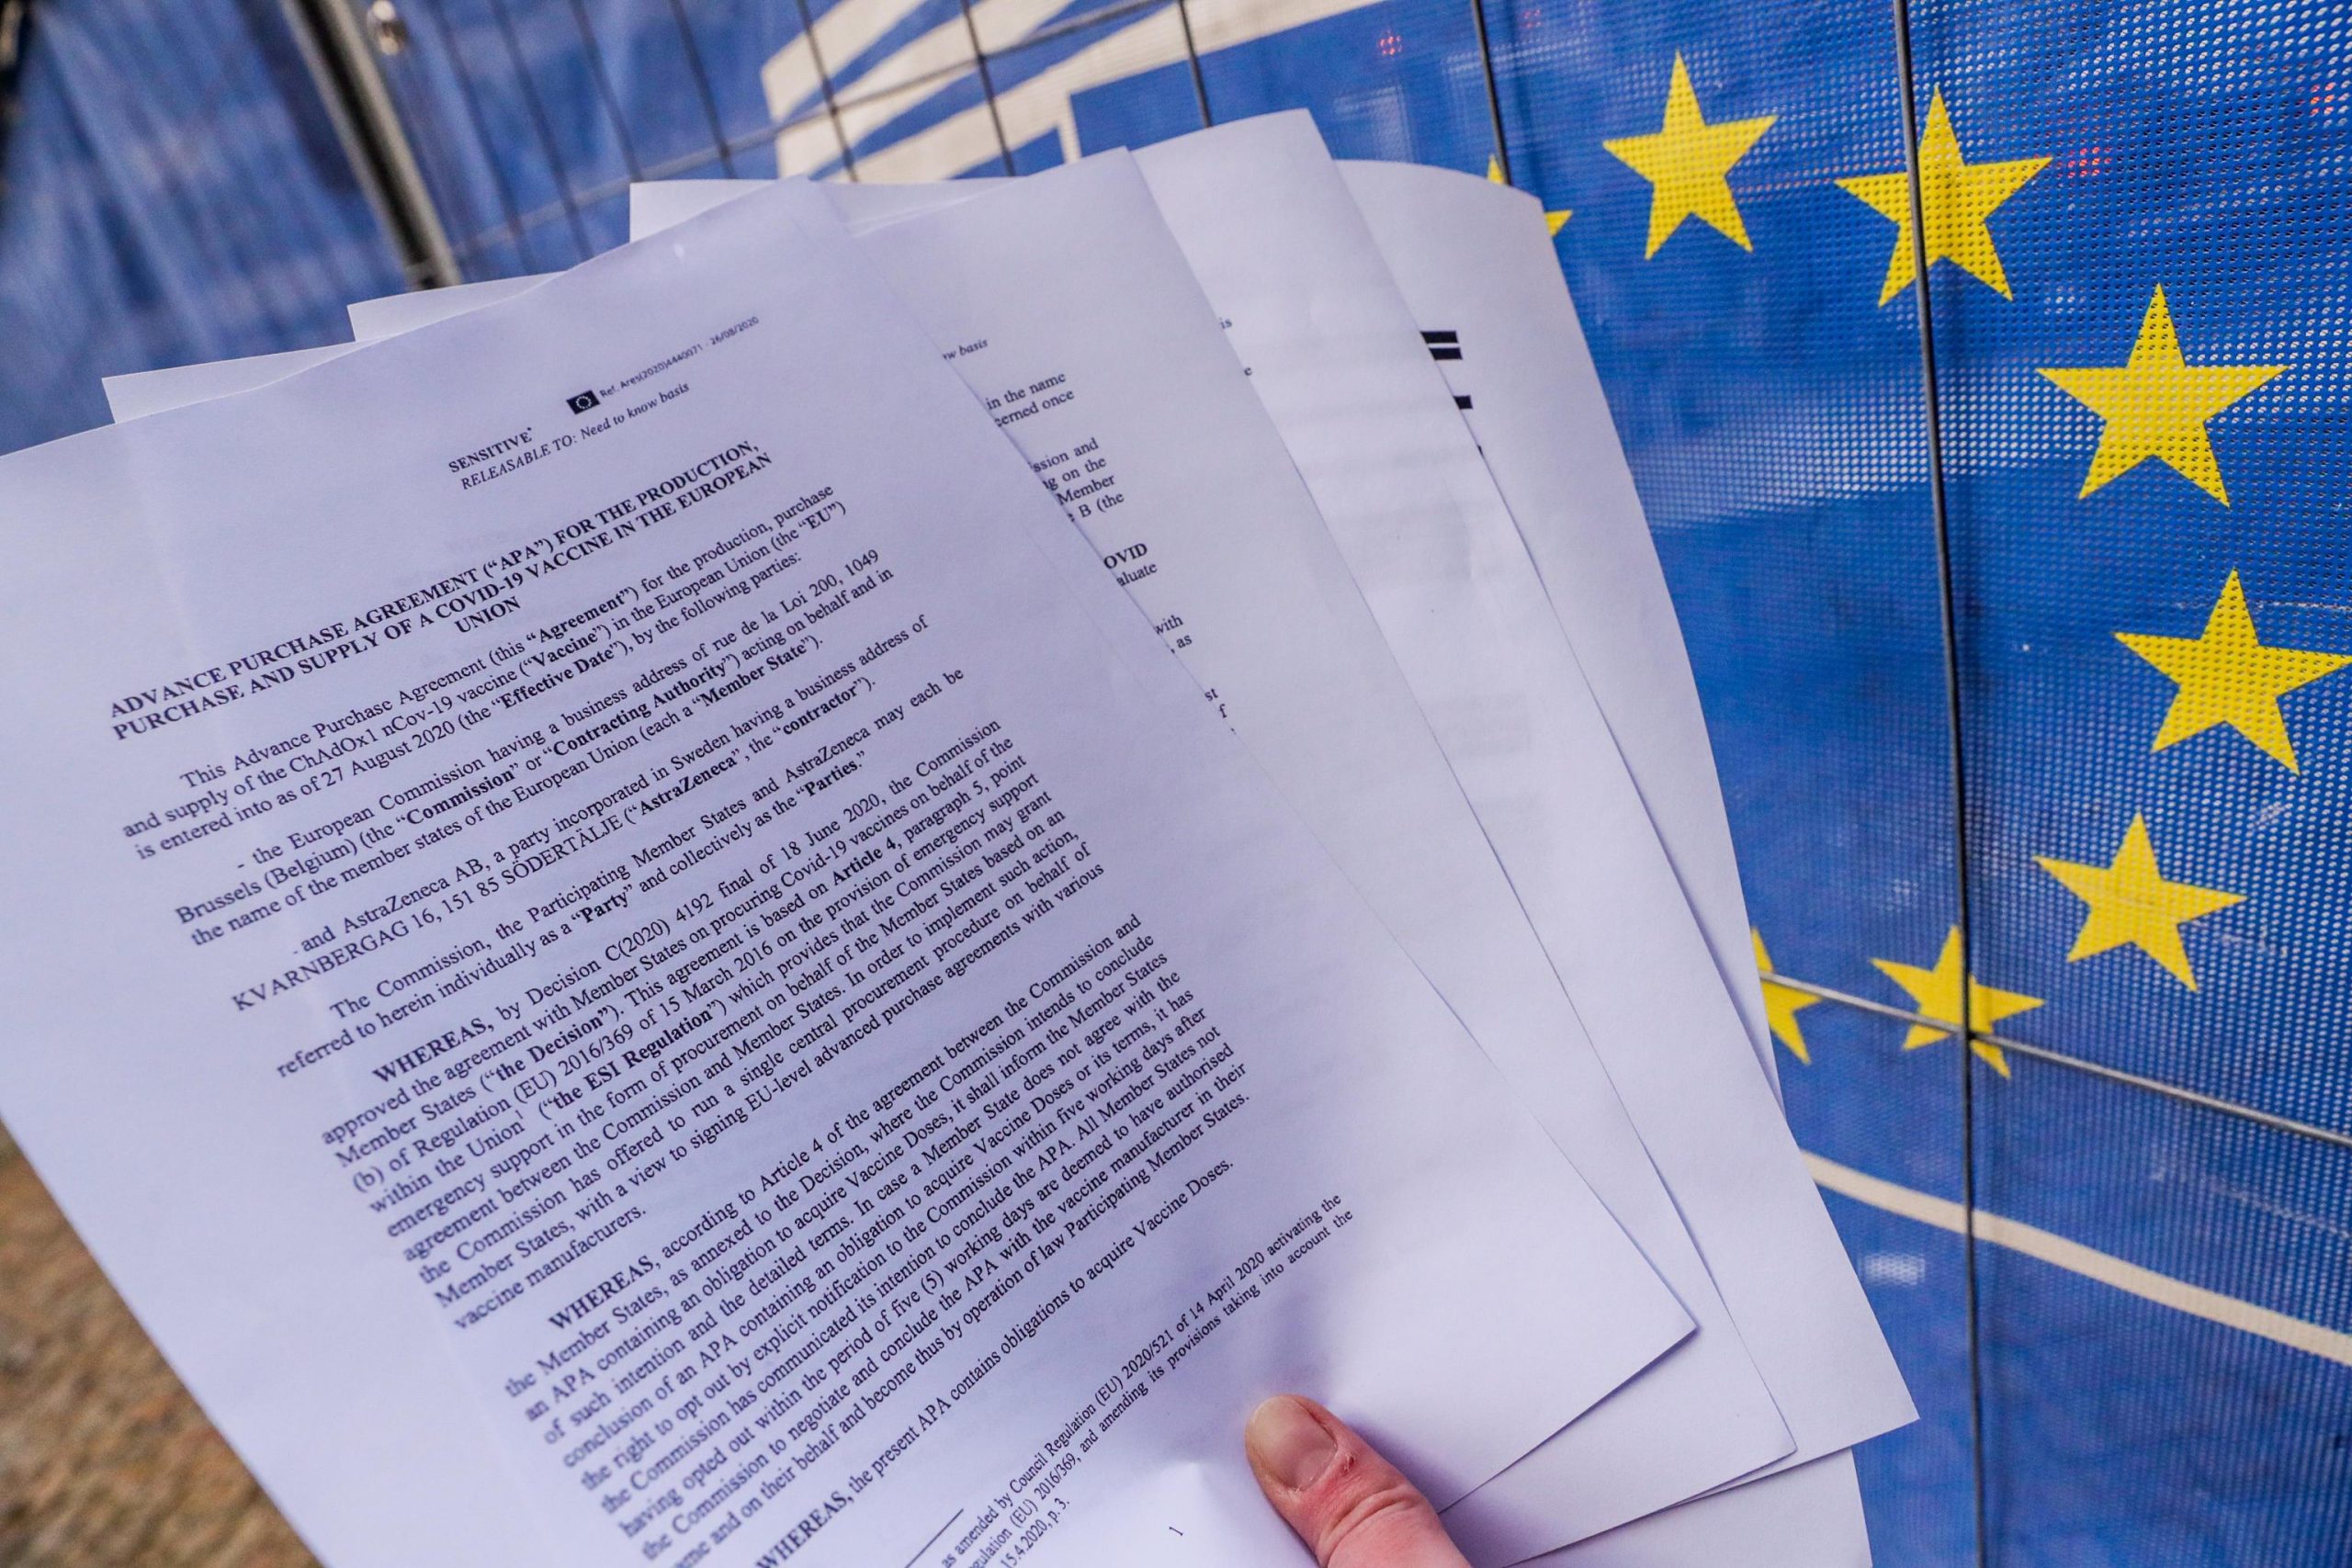 Ref. Ares(2020)4440071 - 26/08/2020
SENSITIVE*
RELEASABLE TO: Need to know basis
ADVANCE PURCHASE AGREEMENT (“APA”) FOR THE PRODUCTION,
PURCHASE AND SUPPLY OF A COVID-19 VACCINE IN THE EUROPEAN
UNION
This Advance Purchase Agreement (this “Agreement”) for the production, purchase
and supply of the ChAdOx1 nCov-19 vaccine (“Vaccine”) in the European Union (the “EU”)
is entered into as of 27 August 2020 (the “Effective Date”), by the following parties:
- the European Commission having a business address of rue de la Loi 200, 1049
Brussels (Belgium) (the “Commission” or “Contracting Authority”) acting on behalf and in
the name of the member states of the European Union (each a “Member State”).
- and AstraZeneca AB, a party incorporated in Sweden having a business address of
KVARNBERGAG 16, 151 85 SÖDERTÄLJE (“AstraZeneca”, the “contractor”).
The Commission, the Participating Member States and AstraZeneca may each be
referred to herein individually as a “Party” and collectively as the “Parties.”
WHEREAS, by Decision C(2020) 4192 final of 18 June 2020, the Commission
approved the agreement with Member States on procuring Covid-19 vaccines on behalf of the
Member States (“the Decision”). This agreement is based on Article 4, paragraph 5, point
(b) of Regulation (EU) 2016/369 of 15 March 2016 on the provision of emergency support
within the Union1 (“the ESI Regulation”) which provides that the Commission may grant
emergency support in the form of procurement on behalf of the Member States based on an
agreement between the Commission and Member States. In order to implement such action,
the Commission has offered to run a single central procurement procedure on behalf of
Member States, with a view to signing EU-level advanced purchase agreements with various
vaccine manufacturers.
WHEREAS, according to Article 4 of the agreement between the Commission and
the Member States, as annexed to the Decision, where the Commission intends to conclude
an APA containing an obligation to acquire Vaccine Doses, it shall inform the Member States
of such intention and the detailed terms. In case a Member State does not agree with the
conclusion of an APA containing an obligation to acquire Vaccine Doses or its terms, it has
the right to opt out by explicit notification to the Commission within five working days after
the Commission has communicated its intention to conclude the APA. All Member States not
having opted out within the period of five (5) working days are deemed to have authorised
the Commission to negotiate and conclude the APA with the vaccine manufacturer in their
name and on their behalf and become thus by operation of law Participating Member States.
WHEREAS, the present APA contains obligations to acquire Vaccine Doses.
as amended by Council Regulation (EU) 2020/521 of 14 April 2020 activating the
(EU) 2016/369, and amending its provisions taking into account the
15.4.2020, p. 3.
1
basis
in the name
once
and
on the
Member
B (the
with
as
is